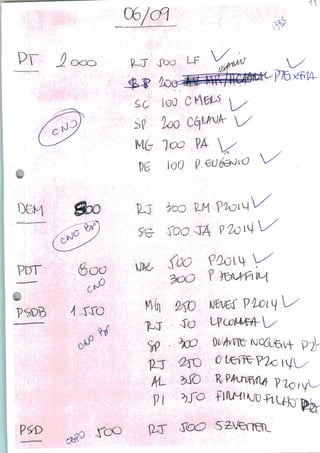 06/09
PT 2.000 RJ 500 LF
SP 200 P TEIXEIRA
SC 100 C MERS
CNO SP 200 CGRAVA
MG 700 PA
DE 100 P. EUGÊNIO
DEM 800 RJ 300 RM P2014
CNO BR SE 500 JA P2014
PDT 800 NAC 500 P2014
CNO 300 P SERAFIM
PSDB 1.550 MG 250 NEVES P2014
RJ 50 LPCORREA
CNO BR SP 300 DUARTE NOGUEIRA P2
RJ 250 O LEITE P2014
AL 350 R. PALMEIRA P2014
PI 350 FIRMINO FILHO
PSD 500 RJ 500 SZVEITER